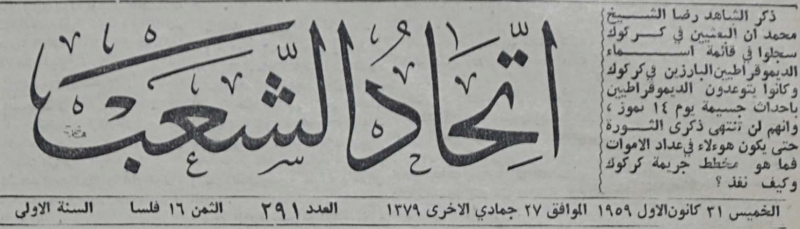 ذكر الشاهد رضا الشيخ
محمد ان البعثيين في كركوك
سجلوا في قائمة اسماء
الديموقراطيين البارزين في كركوك
وكانوا يتوعدون الديموقراطيين
باحداث جسيمة يوم ١٤ تموز ،
وانهم لن تنتهى ذكرى الثورة
حتى يكون هوءلاء في عداد الاموات
فما هو مخطط جريمة كركوك
وكيف نفذ ؟
اتحاد الشعب
الخميس ٣١ كانون الاول ١٩٥٩ الموافق ٢٧ جمادي الاخرى ١٣٧٩ العدد ٢٩١ الثمن ١٦ فلسا السنة الاولى